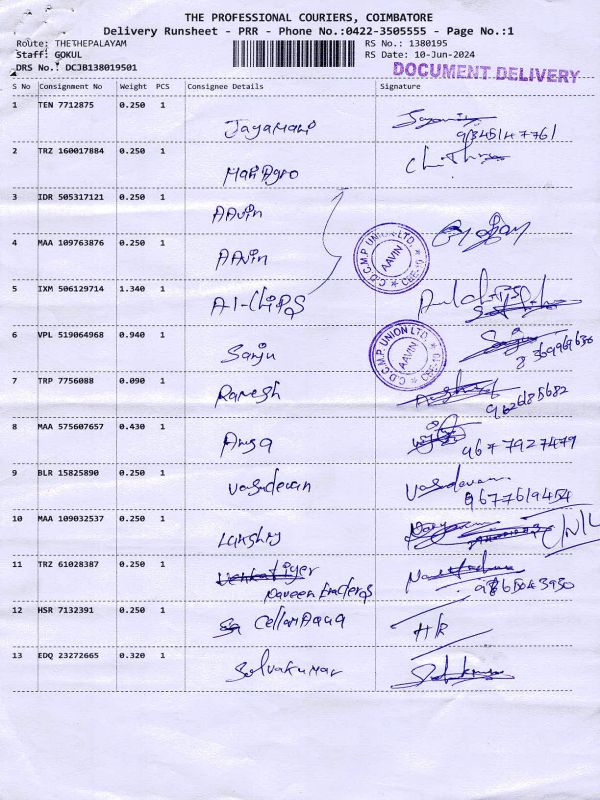 THE PROFESSIONAL COURIERS, COIMBATORE
Delivery Runsheet - PRR - Phone No.:0422-3505555 - Page No.:1
Route: THETHEPALAYAM RS No.: 1380195
Staff: GOKUL RS Date: 10-Jun-2024
DRS No.: DCJB138019501 DOCUMENT DELIVERY
S No Consignment No Weight PCS Consignee Details Signature
1 TEN 7712875 0.250 1 Jayamani
2 TRZ 160017884 0.250 1 Mani Agro
3 IDR 505317121 0.250 1 AAvin
4 MAA 109763876 0.250 1 AAvin
C.D.C.M.P. UNION LTD. AAVIN CBE-10
5 IXM 506129714 1.340 1 A1-Chips
C.D.C.M.P. UNION LTD. AAVIN CBE-10
6 VPL 519064968 0.940 1 Sanju
7 TRP 7756088 0.090 1 Ramesh
9626685682
8 MAA 575607657 0.430 1
9677927479
9 BLR 15825890 0.250 1 vasudevan Vasudevan
9677619454
10 MAA 109032537 0.250 1
11 TRZ 61028387 0.250 1
Naveen traders
12 HSR 7132391 0.250 1
13 EDQ 23272665 0.320 1 Selvakumar